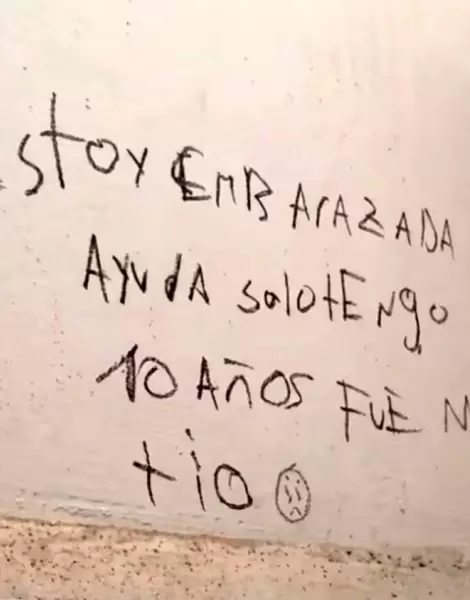 stoy EMBARAZADA
AyudA solotENgo
10 AñOS FUE M
tio